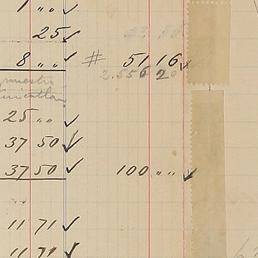 1 " " ✓
25 ✓
8 " " ✓ # 51,16 ✓
2.556 20
25 " " ✓
37 50 ✓
37 50 ✓ 100 " " ✓
11 71 ✓
11 71 ✓